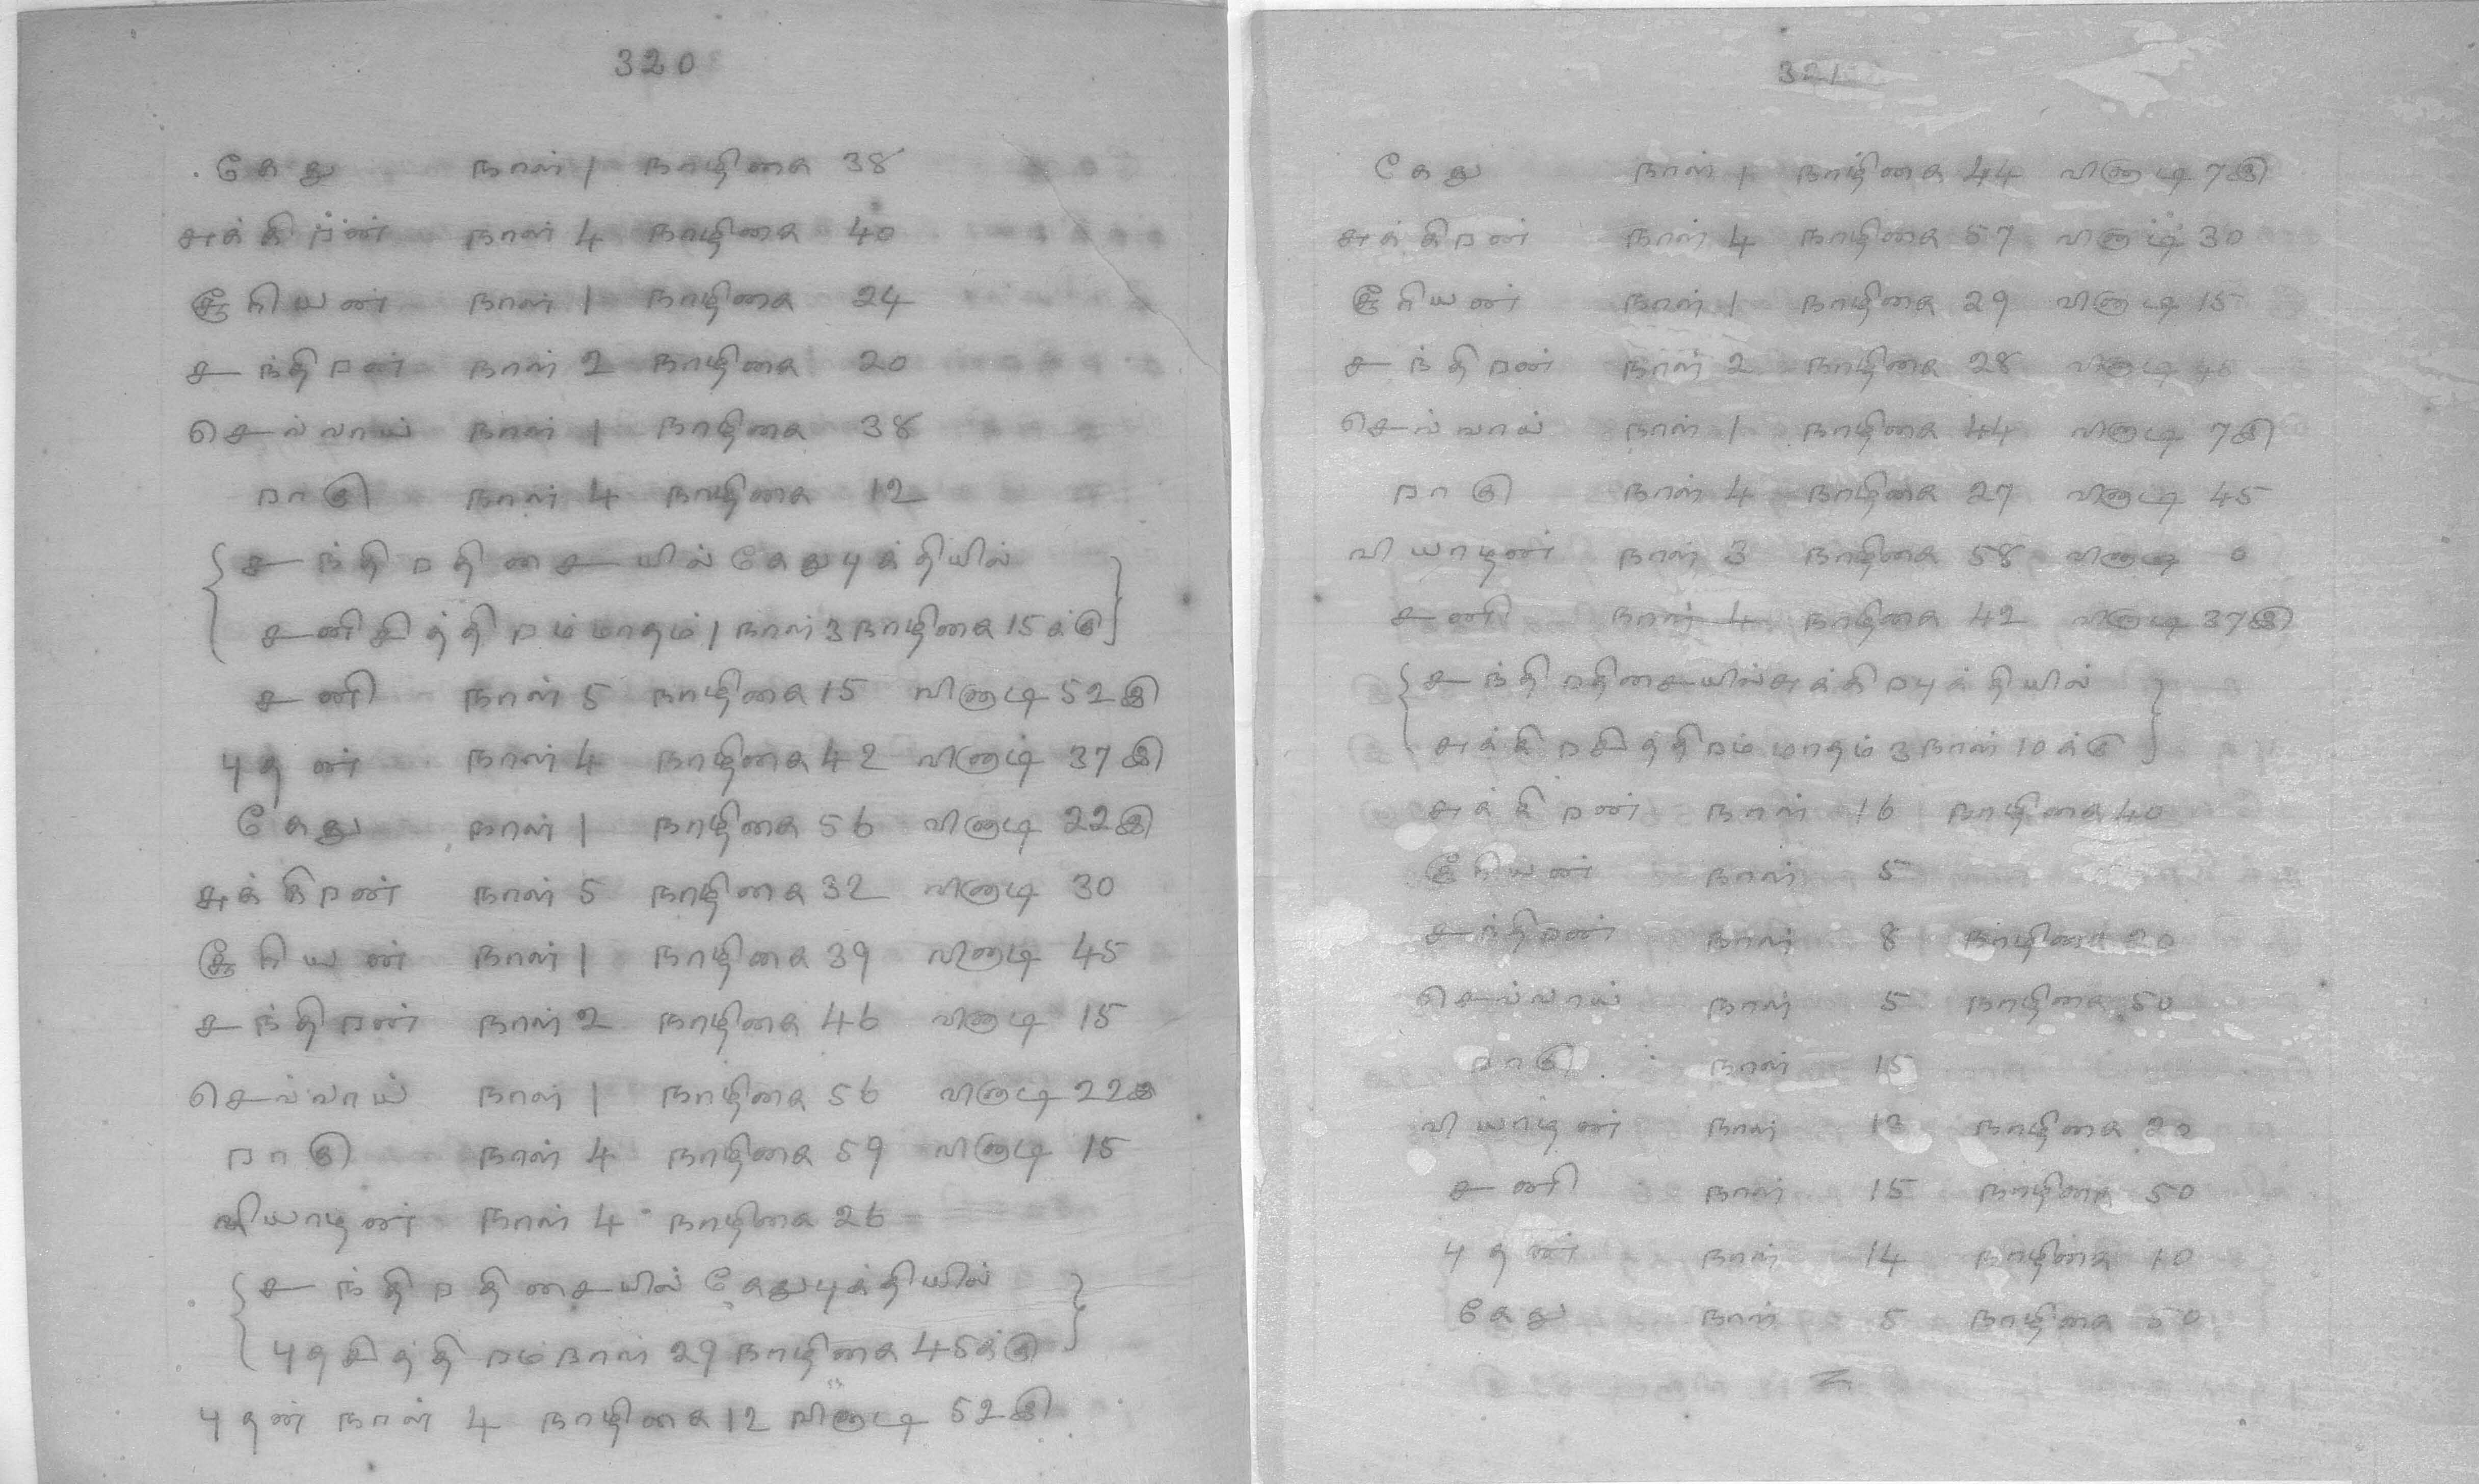 320
கேது நாள் 1 நாழிகை 38
சுக்கிறன் நாள் 4 நாழிகை 40
சூரியன் நாள் 1 நாழிகை 24
சந்திறன் நாள் 2 நாழிகை 20
செவ்வாய் நாள் 1 நாழிகை 38
றாகு நாள் 4 நாழிகை 12
சந்திறதிசையில் கேதுபுக்தியில்
சனிசித்திறம் மாதம் 1 நாள் 3 நாழிகை 15க்கு
சனி நாள் 5 நாழிகை 15 வினாடி 52இ
புதன் நாள் 4 நாழிகை 42 வினாடி 37இ
கேது நாள் 1 நாழிகை 56 வினாடி 22இ
சுக்கிறன் நாள் 5 நாழிகை 32 வினாடி 30
சூரியன் நாள் 1 நாழிகை 39 வினாடி 45
சந்திறன் நாள் 2 நாழிகை 46 வினாடி 15
செவ்வாய் நாள் 1 நாழிகை 56 வினாடி 22இ
றாகு நாள் 4 நாழிகை 59 வினாடி 15
வியாழன் நாள் 4 நாழிகை 26
சந்திறதிசையில் கேதுபுக்தியில்
புதசித்திறம் நாள் 29 நாழிகை 45க்கு
புதன் நாள் 4 நாழிகை 12 வினாடி 52இ
321
கேது நாள் 1 நாழிகை 44 வினாடி 7இ
சுக்கிறன் நாள் 4 நாழிகை 57 வினாடி 30
சூரியன் நாள் 1 நாழிகை 29 வினாடி 15
சந்திறன் நாள் 2 நாழிகை 28 வினாடி 45
செவ்வாய் நாள் 1 நாழிகை 44 வினாடி 7இ
றாகு நாள் 4 நாழிகை 27 வினாடி 45
வியாழன் நாள் 3 நாழிகை 58 வினாடி 0
சனி நாள் 4 நாழிகை 42 வினாடி 37இ
சந்திறதிசையில் சுக்கிறபுக்தியில்
சுக்கிறசித்திறம் மாதம் 3 நாள் 10க்கு
சுக்கிறன் நாள் 16 நாழிகை 40
சூரியன் நாள் 5
சந்திறன் நாள் 8 நாழிகை 20
செவ்வாய் நாள் 5 நாழிகை 50
றாகு நாள் 15
வியாழன் நாள் 13 நாழிகை 20
சனி நாள் 15 நாழிகை 50
புதன் நாள் 14 நாழிகை 10
கேது நாள் 5 நாழிகை 50